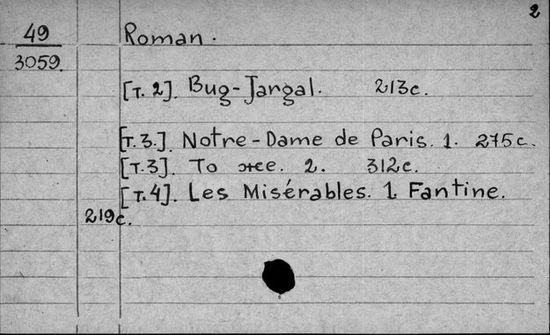 2
49
3059.
Roman.
[т. 2]. Bug-Jargal. 213с.
[т.3.]. Notre-Dame de Paris. 1. 275с.
[т.3]. То же. 2. 312с.
[т.4]. Les Misérables. 1. Fantine.
219с.